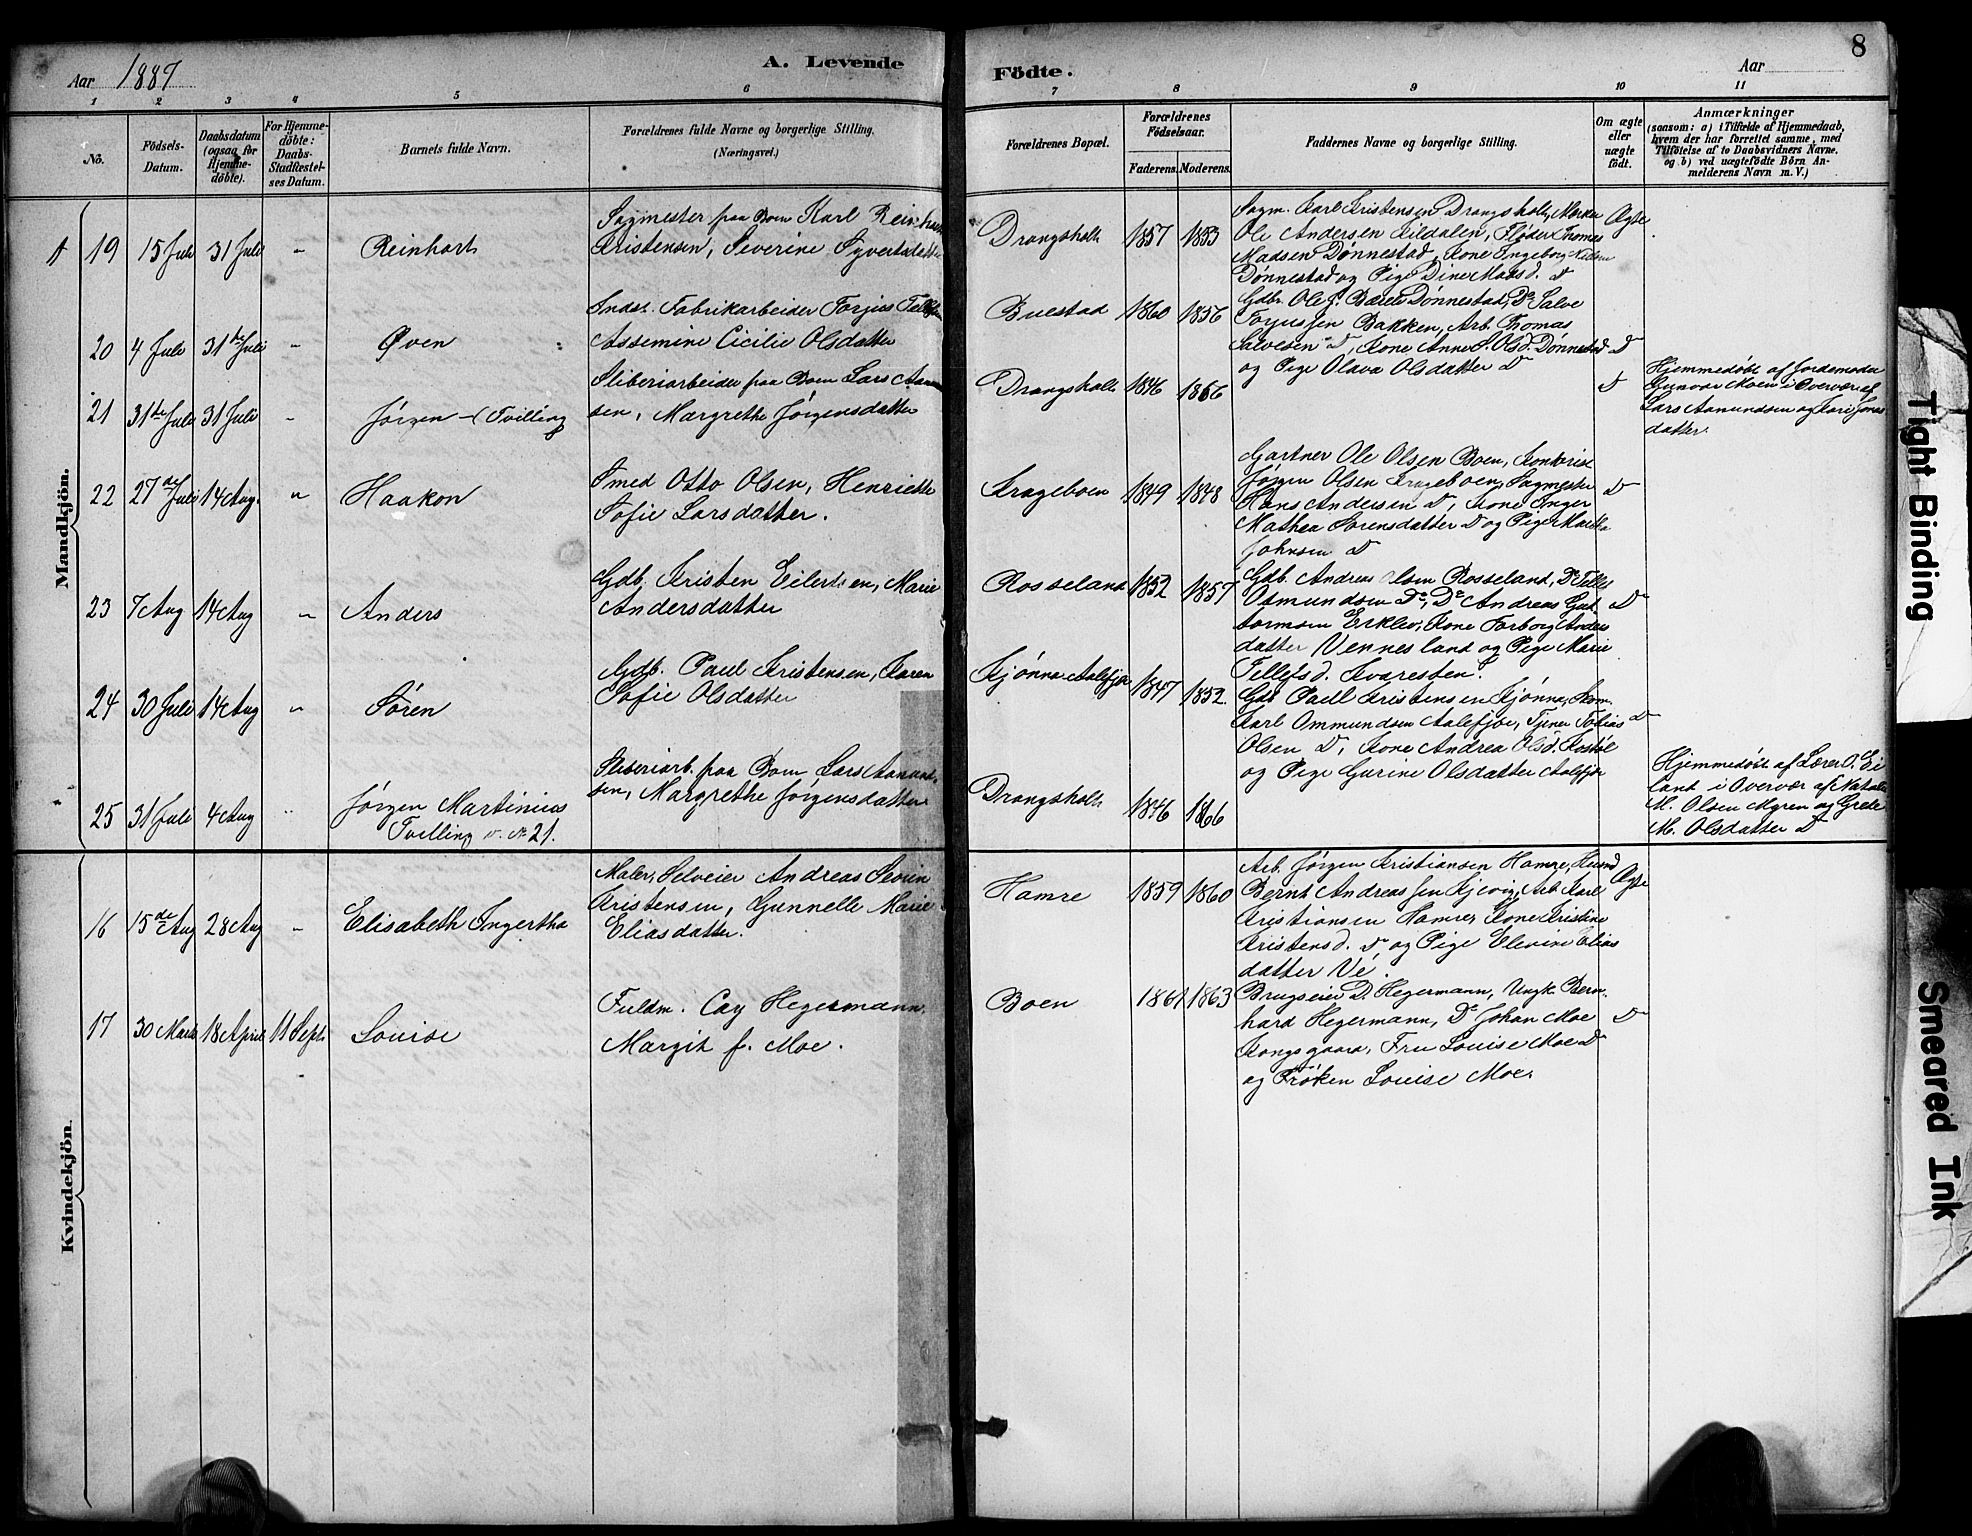 Aar 1887
A. Levende
Födte.
Aar
8
1 2 3 4 5 6 7 8 9 10 11
No.
Födsels-
Datum.
Daabsdatum
(ogsaa for
Hjemme-
döbte).
For Hjemme-
döbte:
Daabs-
Stadfæstel-
ses Datum.
Barnets fulde Navn.
Forældrenes fulde Navne og borgerlige Stilling.
(Næringsvei.)
Forældrenes Bopæl.
Forældrenes
Födselsaar.
Faderens. Moderens.
Faddernes Navne og borgerlige Stilling.
Om ægte
eller
uægte
födt.
Anmærkninger
(saasom: a) i Tilfælde af Hjemmedaab,
hvem der har forrettet samme, med
Tilföielse af to Daabsvidners Navne,
og b) ved uægtefödte Börn An-
melderens Navn m. V.)
Mandkjön.
19 15 Juli 31 Juli " Reinhart
Sagmester paa Boen Karl Reinhart
Kristensen, Severine Syvertsdatter
Drangsholt 1857 1853
Sagm. Karl Kristensen Drangsholt,
Ole Andersen Kildalen, Fløder Thomas
Madsen Dønnestad, Kone Ingeborg
Dønnestad og Pige Dine Madsd. D
Ægte
20 4 Juli 31te Juli " Øven
Indst. Fabrikarbeider Torjus Tellefsen
Assemine Cicilie Olsdatter
Buestad 1860 1856
Gdbr. Ole J. Dønnestad, Do Salve
Torjussen Bakken, Arb. Thomas
Salvesen D, Kone Anne S. Olsd. Dønnestad
og Pige Olava Olsdatter D
D
21 31te Juli 31 Juli " Jørgen - (Tvilling
Sliberiarbeider paa Boen Lars Aamund
sen, Margrethe Jørgensdatter
Drangsholt 1846 1866
D
Hjemmedøbt af Jordemoder
Gunvor Moen i Overvær af
Lars Aamundsen og Kari Jons
datter.
22 27de Juli 14 Aug. " Haakon
Smed Otto Olsen, Henriette
Sofie Larsdatter.
Krageboen 1849 1848
Gartner Ole Olsen Boen, Kontorist
Jørgen Olsen Krageboen, Sagmester
Hans Andersen D, Kone Inger
Mathea Sørensdatter D og Pige Martha
Johnsen D
D
23 7 Aug 14 Aug " Anders
Gdb. Kristen Eilertsen, Marie
Andersdatter
Rosseland 1852 1857
Gdb. Andreas Olsen Rosseland, Do Tellef
Osmundsen Do, Do Andreas Gut
tormsen Erklev, Kone Torborg Anders
datter Vennesland og Pige Marie
Tellefsd. Kvaresten.
D
24 30 Juli 14 Aug " Søren
Gdb. Paul Kristensen, Karen
Sofie Olsdatter
Kjønna Aalefjær 1847 1852.
Gdb Paul Kristensen Kjønna,
Karl Ommundsen Aalefjær, Tjener Tobias
Olsen D, Kone Andrea Olsd. Kostøl
og Pige Gurine Olsdatter Aalefjær
D
25 31 Juli 4 Aug " Jørgen Martinius
Tvilling v. No 21.
Sliberiarb. paa Boen Lars Aamund-
sen, Margrethe Jørgensdatter
Drangsholt 1846 1866
Hjemmedøbt af Lærer O. Ei
land i Overvær af Natalie
M. Olsen Myren og Grete
M. Olsdatter D
Kvindekjön.
16 15de Aug 28 Aug " Elisabeth Ingertha
Maler, Selveier Andreas Severin
Kristensen, Gunnelle Marie
Eliasdatter.
Hamre 1859 1860
Arb. Jørgen Kristiansen Hamre,
Bernt Andreassen Kjevig, Arb. Karl
Kristiansen Hamre, Kone Kristine
Kristensd. D og Pige Elevine Elias
datter Ve.
Ægte
17 30 Marts 18 April 11 Septr. Louise
Fuldm. Cay Hegermann,
Margit f. Moe.
Boen 1861 1863
Brugseier D. Hegermann, Ungk. Bern-
hard Hegermann, Do Johan Moe
Kongsgaard, Fru Louise Moe D
og Frøken Louise Moe.
D
Tight Binding
Smeared Ink